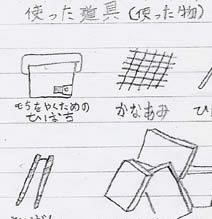 使った道具(使った物)
もちをやくための
ひばち
かなあみ
ひ